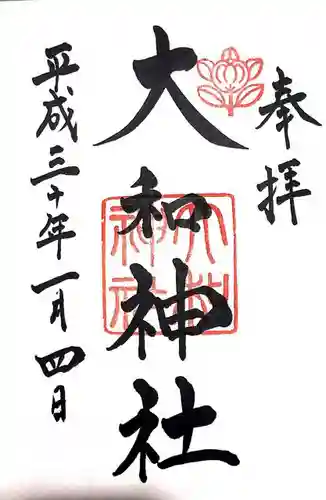 奉拝
大和神社
大和
神社
平成三十年一月四日